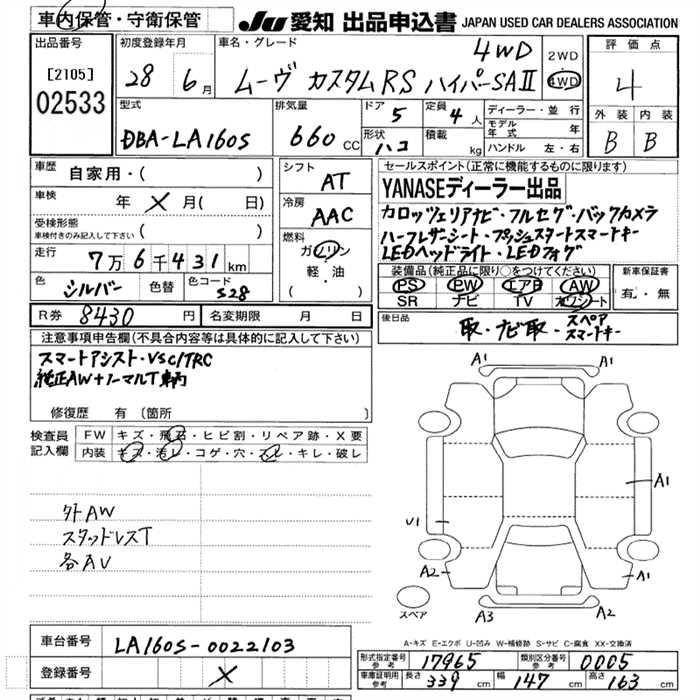 車内保管・守衛保管
JU 愛知 出品申込書 JAPAN USED CAR DEALERS ASSOCIATION
出品番号
[2105]
02533
初度登録年月
28 6月
車名・グレード
4WD
ムーヴ カスタムRS ハイパーSAⅡ
2WD
4WD
評価点
4
外装 内装
B B
型式
DBA-LA160S
排気量
660 CC
ドア 5
形状 ハコ
定員 4人
積載 kg
ディーラー・並行
モデル年式 年
ハンドル 左・右
車歴 自家用・( )
車検 年 X 月( 日)
受検形態
車検付きのみ記入して下さい ( )
走行 7万6千431km
色 シルバー 色替 色コード S28
シフト AT
冷房 AAC
燃料
ガソリン
軽・油
( )
セールスポイント(正常に機能するものに限ります)
YANASEディーラー出品
カロッツェリアナビ・フルセグ・バックカメラ
ハーフレザーシート・プッシュスタートスマートキー
LEDヘッドライト・LEDフォグ
装備品(純正品に限り○をつけてください)
PS PW エアB AW
SR ナビ TV カワシート
新車保証書
有・無
R券 8430円 名変期限 月 日
後日品
取・ナビ取・スペア
スマートキー
注意事項申告欄(不具合内容等は具体的に記入して下さい)
スマートアシスト・VSC/TRC
純正AW+ノーマルT車輌
修復歴 有 〔箇所 〕
検査員記入欄
FW キズ・飛石・ヒビ割・リペア跡・X要
内装 キズ・汚レ・コゲ・穴・スレ・キレ・破レ
外AW
スタッドレスT
各AU
A1
A1
A1
U1
A2
A1
スペア
A3
A2
A-キズ E-エクボ U-凹み W-補修跡 S-サビ C-腐食 XX-交換済
車台番号 LA160S-0022103
登録番号 X
形式指定番号 参考 17965 類別区分番号 参考 0005
車庫証明用 参考 長さ 339cm 幅 147cm 高さ 163cm